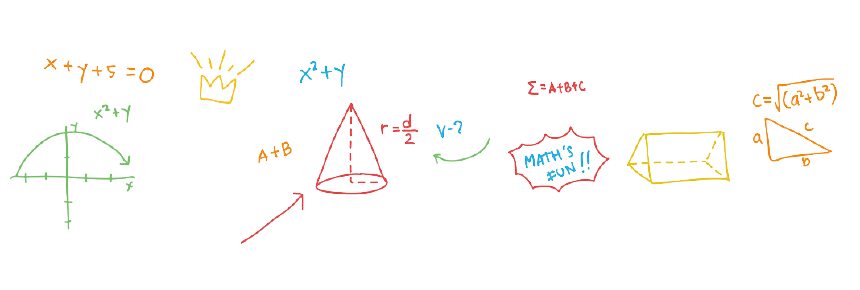 x+y+5=0
x²+y
y
x
x²+y
A+B
r=d/2
V-?
Σ=A+B+C
MATH'S
FUN!!
C=√(a²+b²)
a
c
b